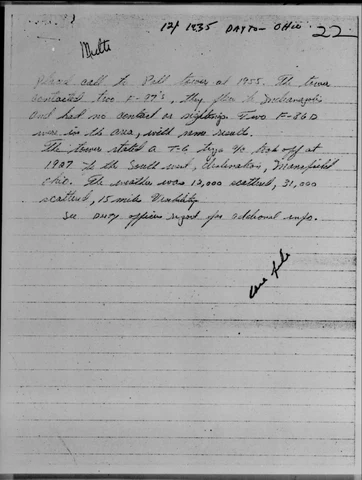 12/1935 DAYTON - OHIO 22
Multi
Phone call to Patt tower at 1955. The tower
contacted two F-89's, they flew to Indianapolis
and had no contact or sightings. Two F-86D
were in the area, with same results.
The tower stated a T-6 type A/C took off at
1907 to the South west, destination, Mansfield
Ohio. The weather was 12,000 scattered, 30,000
scattered, 15 miles Visibility.
See Duty officers report for additional info.
Case file